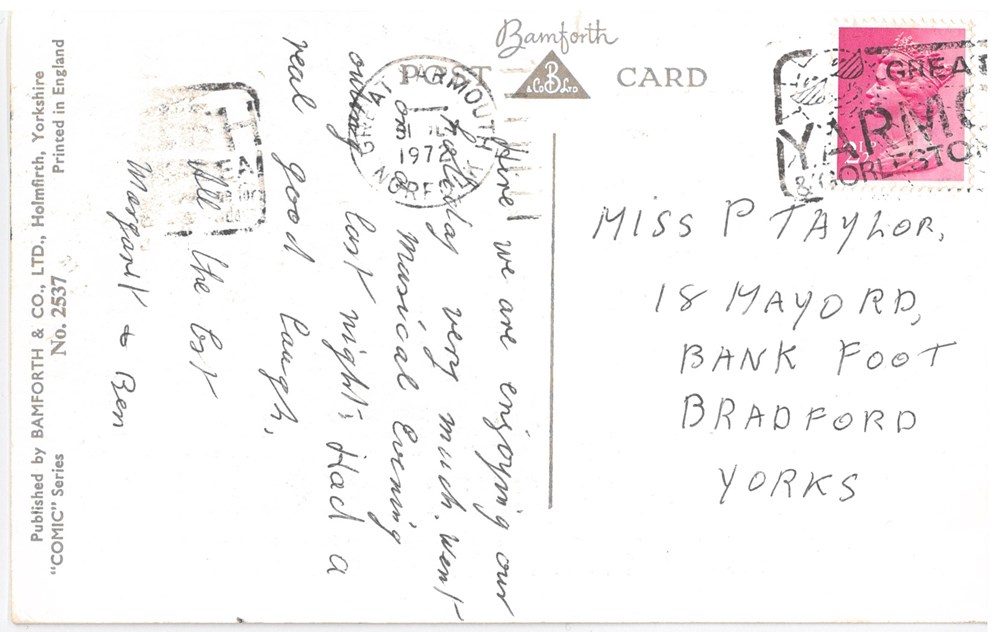 Bamforth
POST CARD
& CO B LTD
GREAT YARMOUTH
1972
NORF
GREAT
YARMO
& GORLESTO
2½
Here we are enjoying our
holiday very much. Went
on a musical Evening
outing last night; Had a
real good laugh.
All the best
Margaret & Ben
MISS P TAYLOR,
18 MAYO RD,
BANK FOOT
BRADFORD
YORKS
Published by BAMFORTH & CO., LTD., Holmfirth, Yorkshire
"COMIC" Series No. 2537 Printed in England